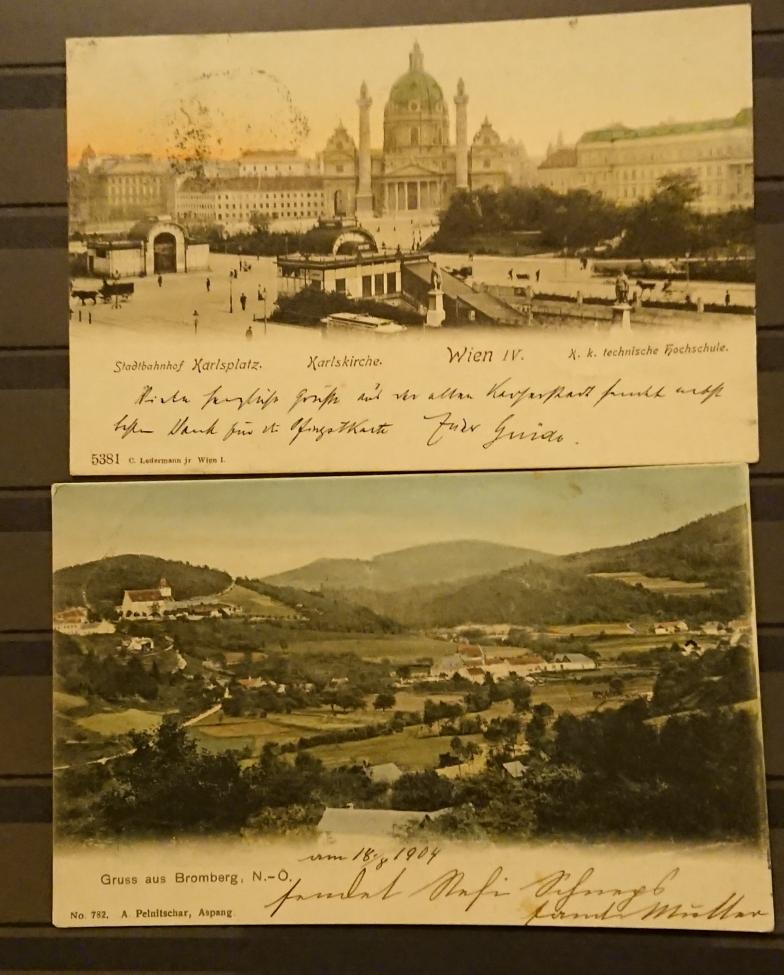 Stadtbahnhof Karlsplatz. Karlskirche. Wien IV. K. k. technische Hochschule.
Viele herzliche Grüße aus der alten Kaiserstadt sendet nebst
bestem Dank für die Pfingstkarte Euer Guido.
5381 C. Ledermann jr Wien I.
am 18/8 1904
Gruss aus Bromberg, N.-Ö.
sendet Resi Schneps
No. 782. A. Pelnitschar, Aspang.
samt Mutter